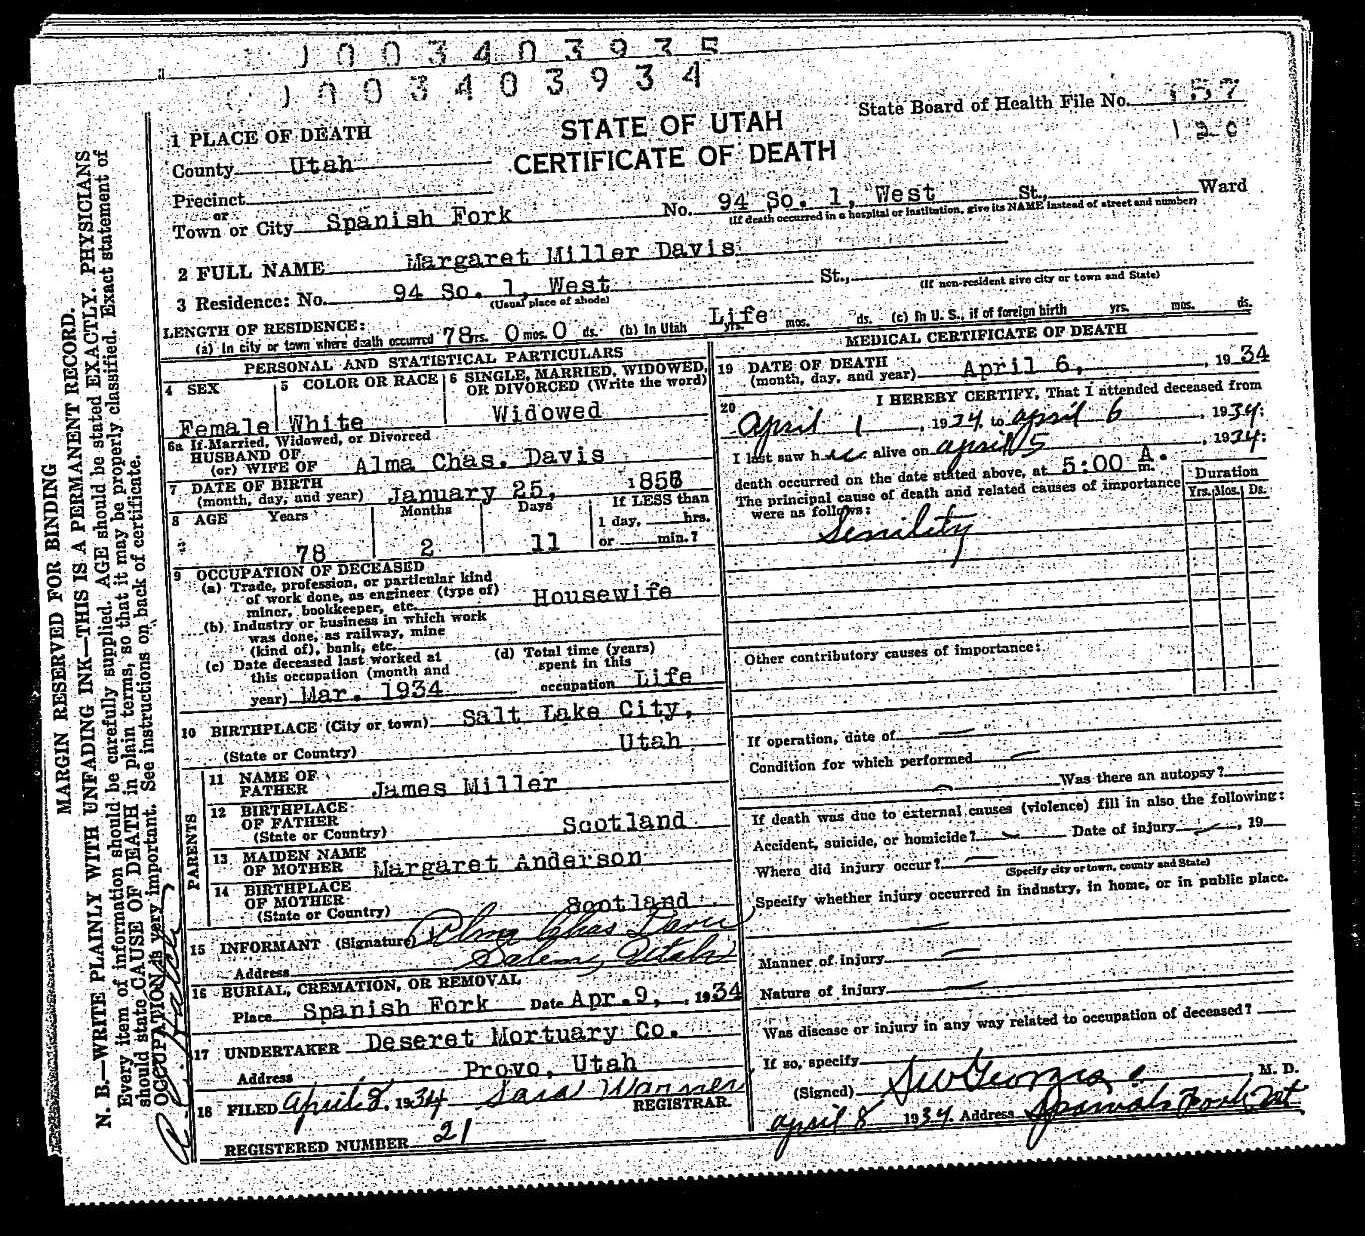 1003403935
1003403934
State Board of Health File No. 157
120
STATE OF UTAH
CERTIFICATE OF DEATH
1 PLACE OF DEATH
County Utah
Precinct
or
Town or City Spanish Fork No. 94 So. 1, West St., Ward
(If death occurred in a hospital or institution, give its NAME instead of street and number)
2 FULL NAME Margaret Miller Davis
3 Residence: No. 94 So. 1, West St.,
(Usual place of abode) (If non-resident give city or town and State)
LENGTH OF RESIDENCE:
(a) In city or town where death occurred 78 yrs. 0 mos. 0 ds. (b) In Utah Life yrs. mos. ds. (c) In U. S., if of foreign birth yrs. mos. ds.
PERSONAL AND STATISTICAL PARTICULARS
4 SEX
Female
5 COLOR OR RACE
White
6 SINGLE, MARRIED, WIDOWED,
OR DIVORCED (Write the word)
Widowed
6a If Married, Widowed, or Divorced
HUSBAND OF
(or) WIFE OF Alma Chas. Davis
7 DATE OF BIRTH
(month, day, and year) January 25, 1856
8 AGE Years Months Days If LESS than
1 day, hrs.
78 2 11 or min.?
9 OCCUPATION OF DECEASED
(a) Trade, profession, or particular kind
of work done, as engineer (type of)
miner, bookkeeper, etc. Housewife
(b) Industry or business in which work
was done, as railway, mine
(kind of), bank, etc.
(c) Date deceased last worked at
this occupation (month and
year) Mar. 1934
(d) Total time (years)
spent in this
occupation Life
10 BIRTHPLACE (City or town) Salt Lake City,
(State or Country) Utah
PARENTS
11 NAME OF
FATHER James Miller
12 BIRTHPLACE
OF FATHER
(State or Country) Scotland
13 MAIDEN NAME
OF MOTHER Margaret Anderson
14 BIRTHPLACE
OF MOTHER
(State or Country) Scotland
15 INFORMANT (Signature) Alma Chas Davis
Address Salem, Utah
16 BURIAL, CREMATION, OR REMOVAL
Place Spanish Fork Date Apr. 9, , 1934
17 UNDERTAKER Deseret Mortuary Co.
Address Provo, Utah
18 FILED April 8, 1934 Sara Warner
REGISTRAR.
REGISTERED NUMBER 21
MEDICAL CERTIFICATE OF DEATH
19 DATE OF DEATH
(month, day, and year) April 6, , 1934
20 I HEREBY CERTIFY, That I attended deceased from
April 1 , 1934, to April 6 , 1934:
I last saw her alive on April 5 , 1934:
death occurred on the date stated above, at 5:00 A. m.
The principal cause of death and related causes of importance
were as follows:
Duration
Yrs. Mos. Ds.
Senility
Other contributory causes of importance:
If operation, date of
Condition for which performed
Was there an autopsy?
If death was due to external causes (violence) fill in also the following:
Accident, suicide, or homicide? Date of injury , 19
Where did injury occur?
(Specify city or town, county and State)
Specify whether injury occurred in industry, in home, or in public place.
Manner of injury
Nature of injury
Was disease or injury in any way related to occupation of deceased?
If so, specify
(Signed) , M. D.
April 8 1934. Address Spanish Fork, Ut
MARGIN RESERVED FOR BINDING
N. B.—WRITE PLAINLY WITH UNFADING INK—THIS IS A PERMANENT RECORD.
Every item of information should be carefully supplied. AGE should be stated EXACTLY. PHYSICIANS
should state CAUSE OF DEATH in plain terms, so that it may be properly classified. Exact statement of
OCCUPATION is very important. See instructions on back of certificate.